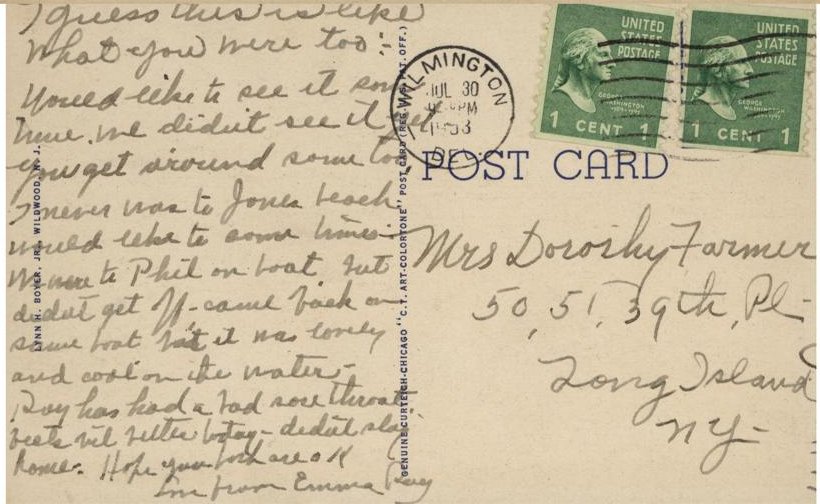 I guess this is like
What you were too.
Would like to see it some
time. We didn't see it yet
you get around some too
I never was to Jones beach
would like to some time.
We were to Phil on boat but
didn't get off - came back on
same boat but it was lovely
and cool on the water -
Ray has had a bad sore throat
feels bit better today - didn't
Home. Hope you both are OK
Love from Emma Ray
LYNN H. BOYER, JR., WILDWOOD, N. J.
GENUINE CURTEICH-CHICAGO "C. T. ART-COLORTONE" POST CARD (REG. U. S. PAT. OFF.)
WILMINGTON
JUL 30
PM
DEL.
UNITED
STATES
POSTAGE
GEORGE
WASHINGTON
1 CENT 1
UNITED
STATES
POSTAGE
GEORGE
WASHINGTON
1 CENT 1
POST CARD
Mrs Dorothy Farmer
50, 51, 39th, Pl -
Long Island
NY -